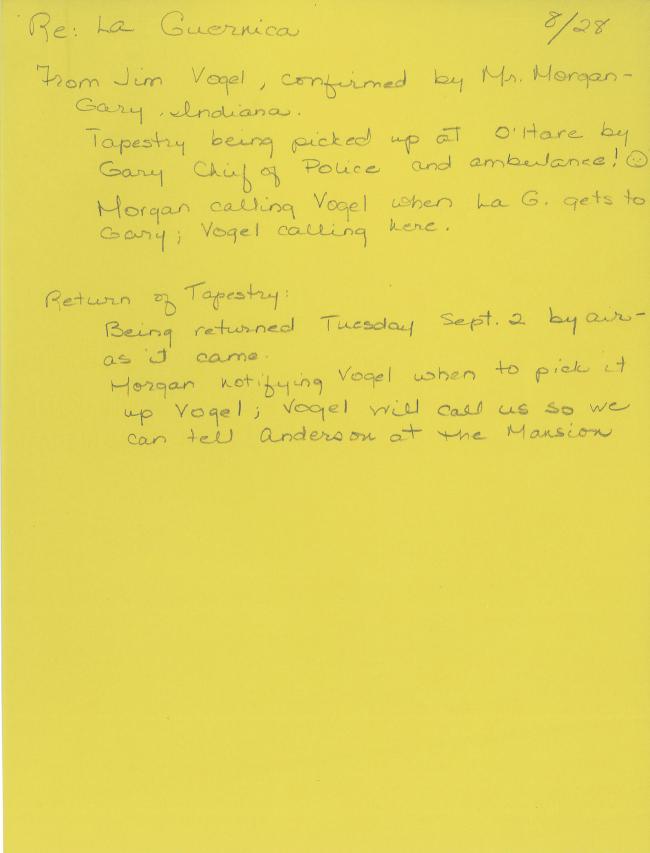 Re: La Guernica 8/28
From Jim Vogel, confirmed by Mr. Morgan-
Gary, Indiana.
Tapestry being picked up at O'Hare by
Gary Chief of Police and ambulance! ☺
Morgan calling Vogel when La G. gets to
Gary; Vogel calling here.
Return of Tapestry:
Being returned Tuesday Sept. 2 by air-
as it came.
Morgan notifying Vogel when to pick it
up Vogel; Vogel will call us so we
can tell Anderson at the Mansion